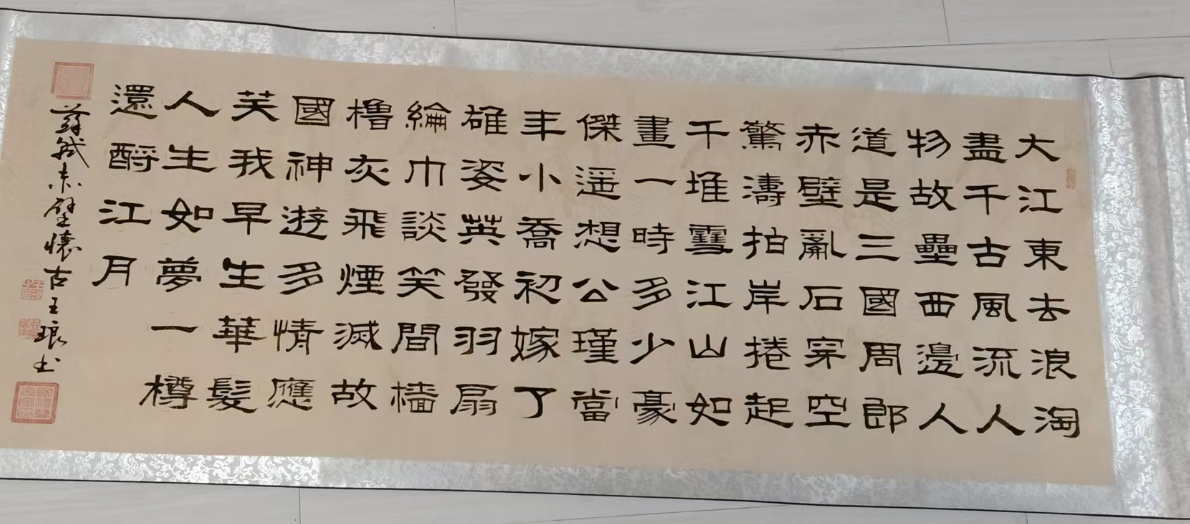 大江東去浪淘
盡千古風流人
物故壘西邊人
道是三國周郎
赤壁亂石穿空
驚濤拍岸捲起
千堆雪江山如
畫一時多少豪
傑遥想公瑾當
年小喬初嫁了
雄姿英發羽扇
綸巾談笑間檣
櫓灰飛煙滅故
國神遊多情應
笑我早生華髮
人生如夢一樽
還酹江月
蘇軾赤壁懷古王琅书